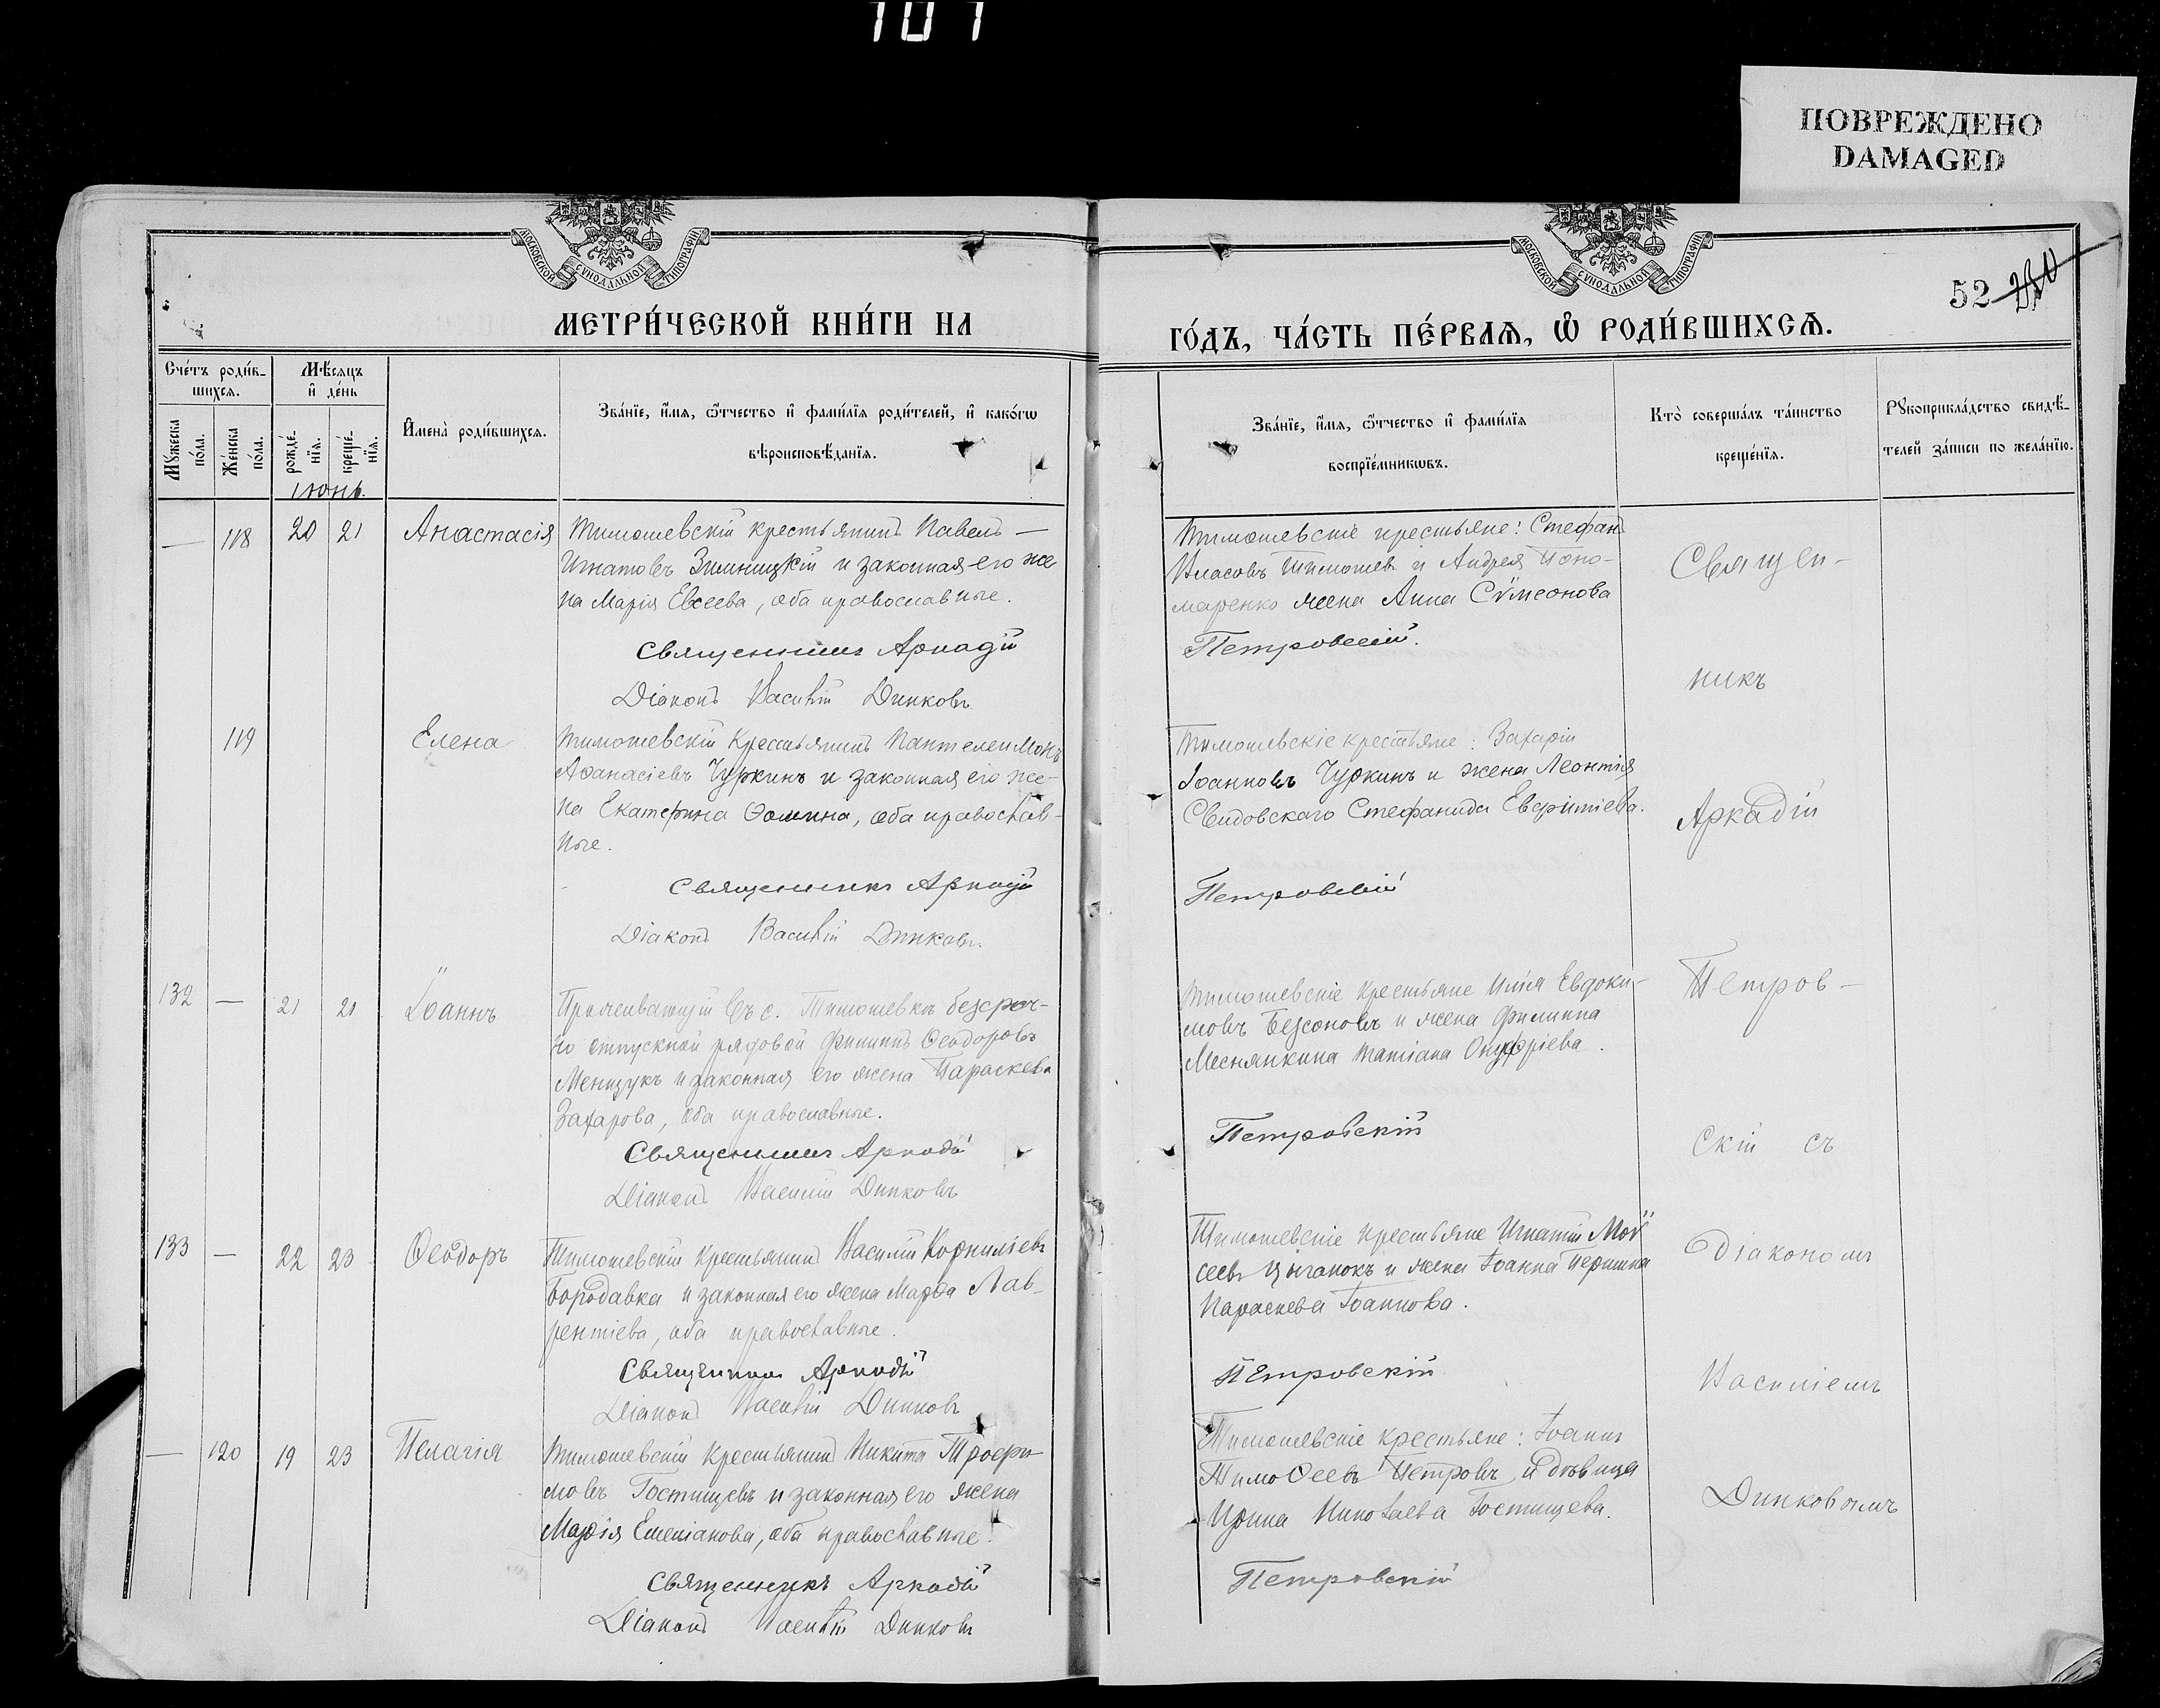 101
ПОВРЕЖДЕНО
DAMAGED
МОСКОВСКОЙ СѴНОДАЛЬНОЙ ТИПОГРАФІИ
МОСКОВСКОЙ СѴНОДАЛЬНОЙ ТИПОГРАФІИ
52
МЕТРИ́ЧЕСКОЙ КНИ́ГИ НА
ГО́ДЪ, ЧА́СТЬ ПЕ́РВАѦ, Ѡ҆ РОДИ́ВШИХСѦ.
Сче́тъ роди́в-
шихсѧ.
Мѣ́сѧцъ
и҆ де́нь
Мꙋ́жеска
по́ла.
Же́нска
по́ла.
рожде́-
нїѧ.
креще́-
нїѧ.
Іюнь.
И҆мена̀ роди́вшихсѧ.
Зва́нїе, и҆́мѧ, ѻ҆́тчество и҆ фами́лїѧ роди́телей, и҆ како́гѡ
вѣроисповѣ́данїѧ.
Зва́нїе, и҆́мѧ, ѻ҆́тчество и҆ фами́лїѧ
воспрїе́мникѡвъ.
Кто̀ соверша́лъ та́инство
креще́нїѧ.
Рꙋкоприкла́дство свидѣ́-
телей за́писи по жела́нїю.
— 118 20 21 Анастасія
Тимошевскій крестьянинъ Павелъ —
Игнатовъ Зимницкій и законная его же
на Марія Евсеева, оба православные.
Священникъ Аркадій
Діаконъ Василій Динковъ
Тимошевскіе крестьяне: Стефанъ
Власовъ Тимошев и Андрея Поно-
маренко жена Анна Сѵмеонова
Петровскій.
119 Елена
Тимошевскій крестьянинъ Пантелеимонъ
Аѳанасіевъ Чуркинъ и законная его же-
на Екатерина Ѳомина, оба православ-
ные.
Священникъ Аркадій
Діаконъ Василій Динковъ.
Тимошевскіе крестьяне: Захарій
Іоанновъ Чуркинъ и жена Леонтія
Свидовскаго Стефанида
Петровскій
132 — 21 21 Іоаннъ
Проживающій въ с. Тимошевкѣ безсроч-
но отпускной рядовой Филиппъ Ѳеодоровъ
Менщукъ и законная его жена Параскева
Захарова, оба православные.
Священникъ Аркадій
Діаконъ Василій Динковъ
Тимошевскіе крестьяне Илія Евдоки-
мовъ Безсоновъ и жена Филиппа
Меснянкина Татіана Онуфріева.
Петровскій
133 — 22 23 Ѳеодоръ
Тимошевскій крестьянинъ Василій Корниліевъ
Бородавка и законная его жена Марѳа Лав-
рентіева, оба православные.
Священникъ Аркадій
Діаконъ Василій Динковъ
Тимошевскіе крестьяне Игнатій Мой
сеевъ Цыганокъ и жена Іоанна
Параскева Іоаннова.
Петровскій
— 120 19 23 Пелагія
Тимошевскій крестьянинъ Никита Трофи-
мовъ Гостищевъ и законная его жена
Марія Емеліанова, оба православные.
Священникъ Аркадій
Діаконъ Василій Динковъ
Тимошевскіе крестьяне: Іоаннъ
Тимоѳеевъ Петровъ и дѣвица
Ирина Николаева Гостищева.
Петровскій
Священ-
никъ
Аркадій
Петров-
скій съ
діакономъ
Василіемъ
Динковымъ